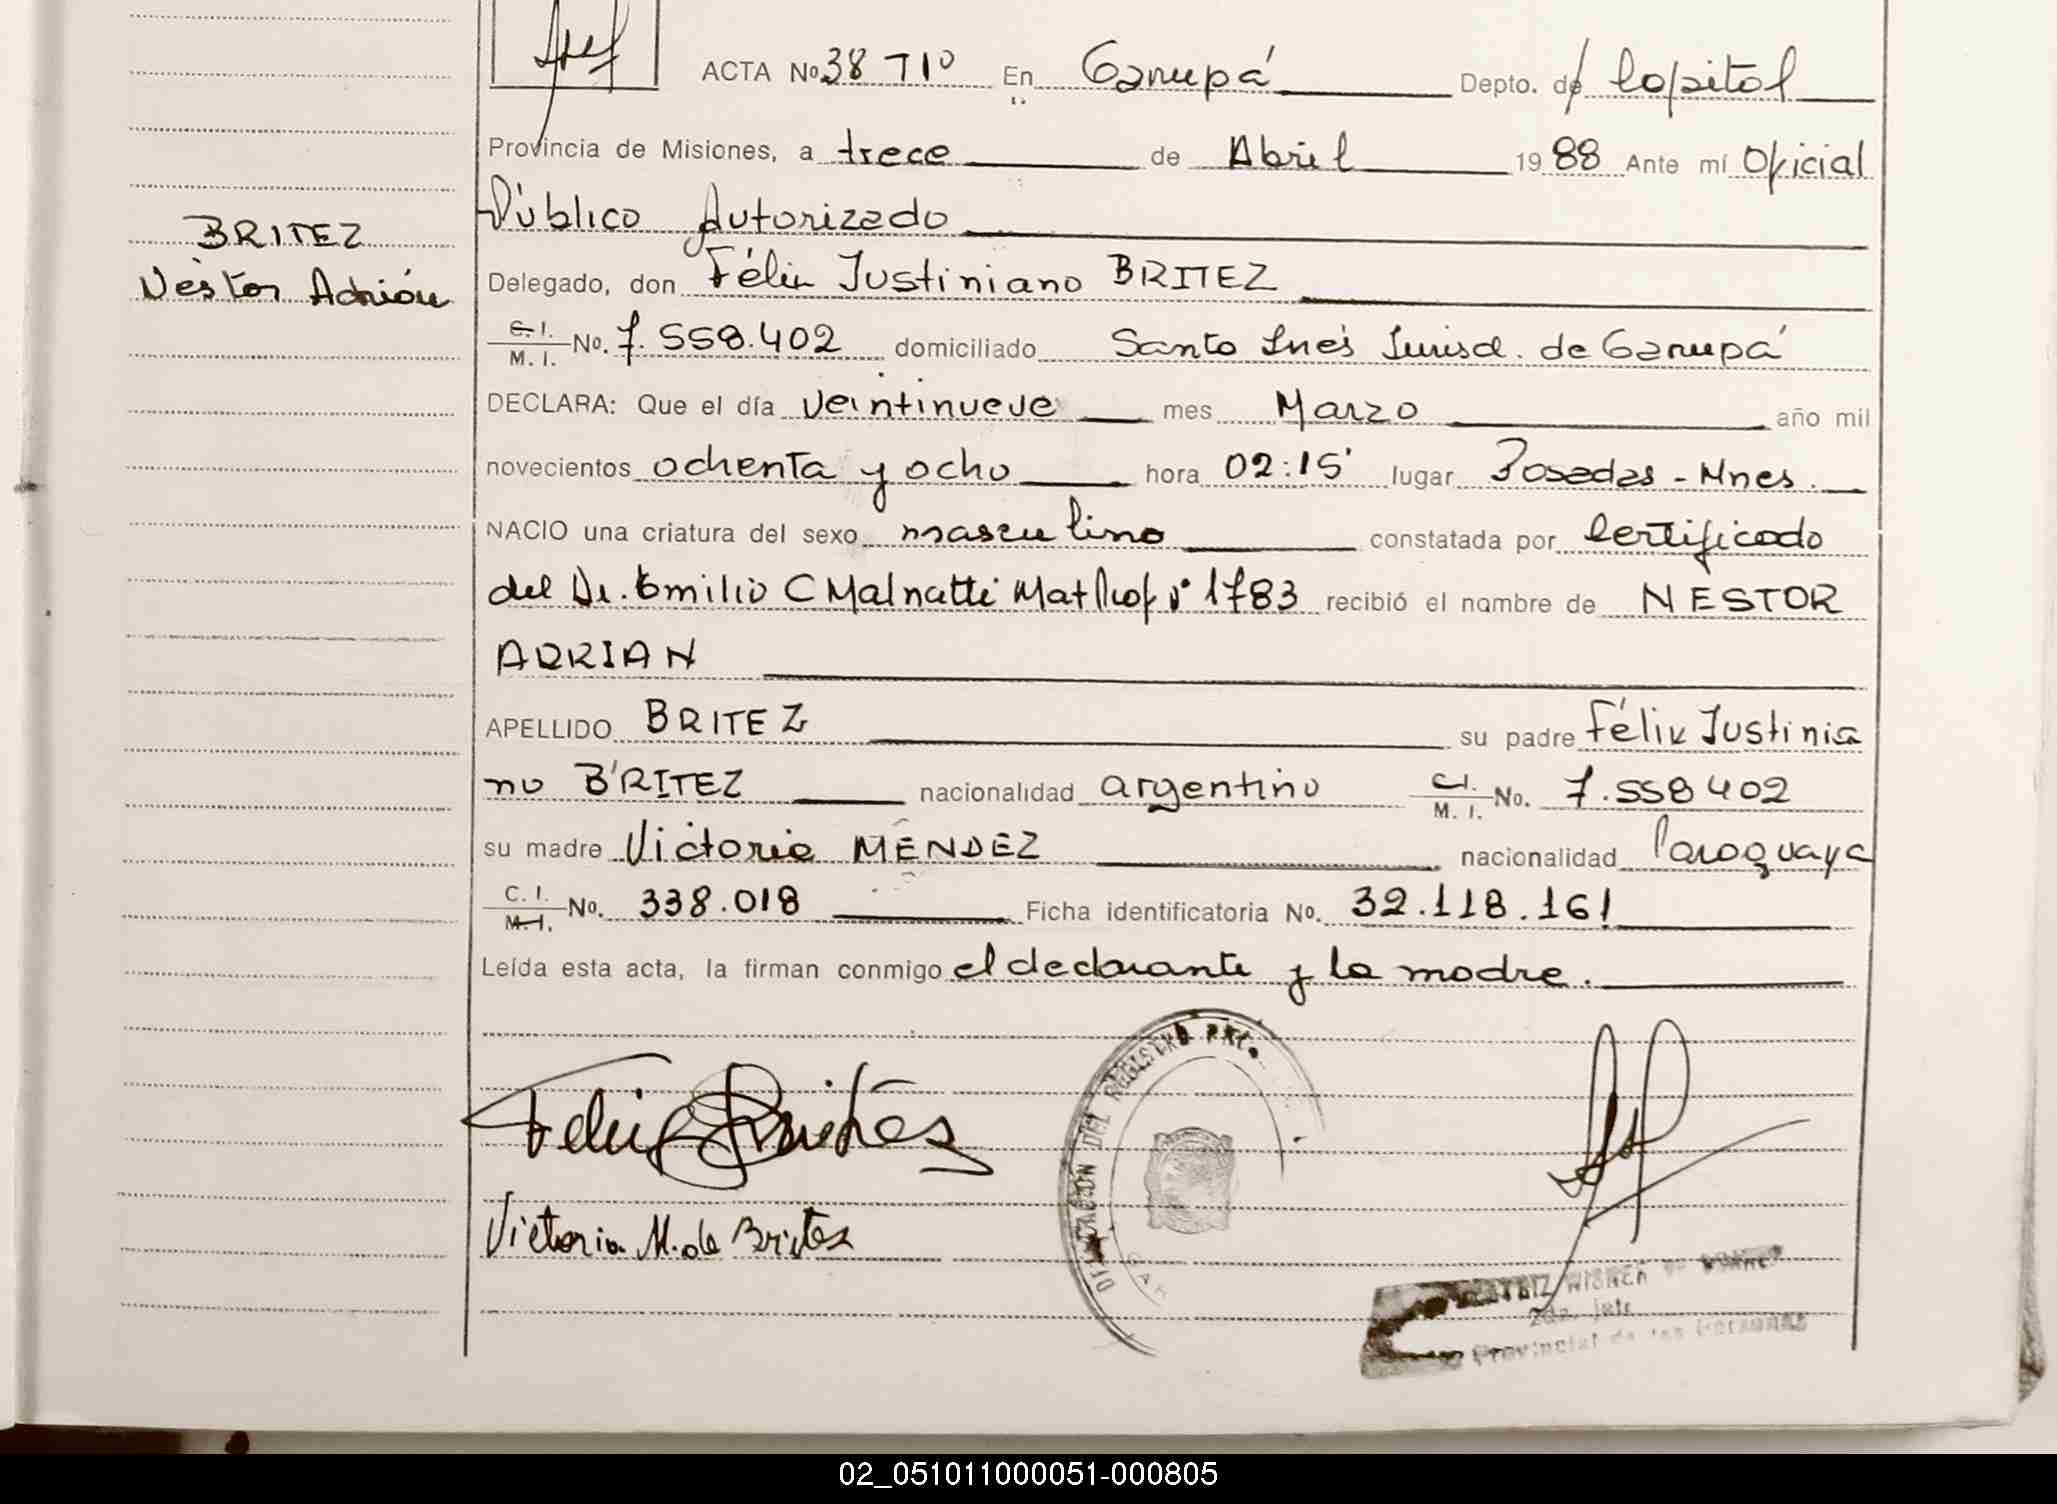 ACTA No 38 T1º En Garupá Depto. de Capital
Provincia de Misiones, a trece de Abril 1988 Ante mí Oficial
Público Autorizado
BRITEZ
Delegado, don Félix Justiniano BRITEZ
Néstor Adrián
C. I. M. I. No. 7.558.402 domiciliado Santa Inés Jurisd. de Garupá
DECLARA: Que el día veintinueve mes Marzo año mil
novecientos ochenta y ocho hora 02:15' lugar Posadas - Mnes.
NACIO una criatura del sexo masculino constatada por Certificado
del Dr. Emilio C Malnatti Mat Prof Nº 1783 recibió el nombre de NESTOR
ADRIAN
APELLIDO BRITEZ su padre Félix Justinia
no BRITEZ nacionalidad argentino C.I. M. I. No. 7.558402
su madre Victoria MÉNDEZ nacionalidad Paraguaya
C. I. M. I. No. 338.018 Ficha identificatoria No. 32.118.161
Leída esta acta, la firman conmigo el declarante y la madre.
DELEGACIÓN DEL REGISTRO
Felix Britez
Victoria M. de Britez
2da. Jefe
Provincial de las Personas
02_051011000051-000805